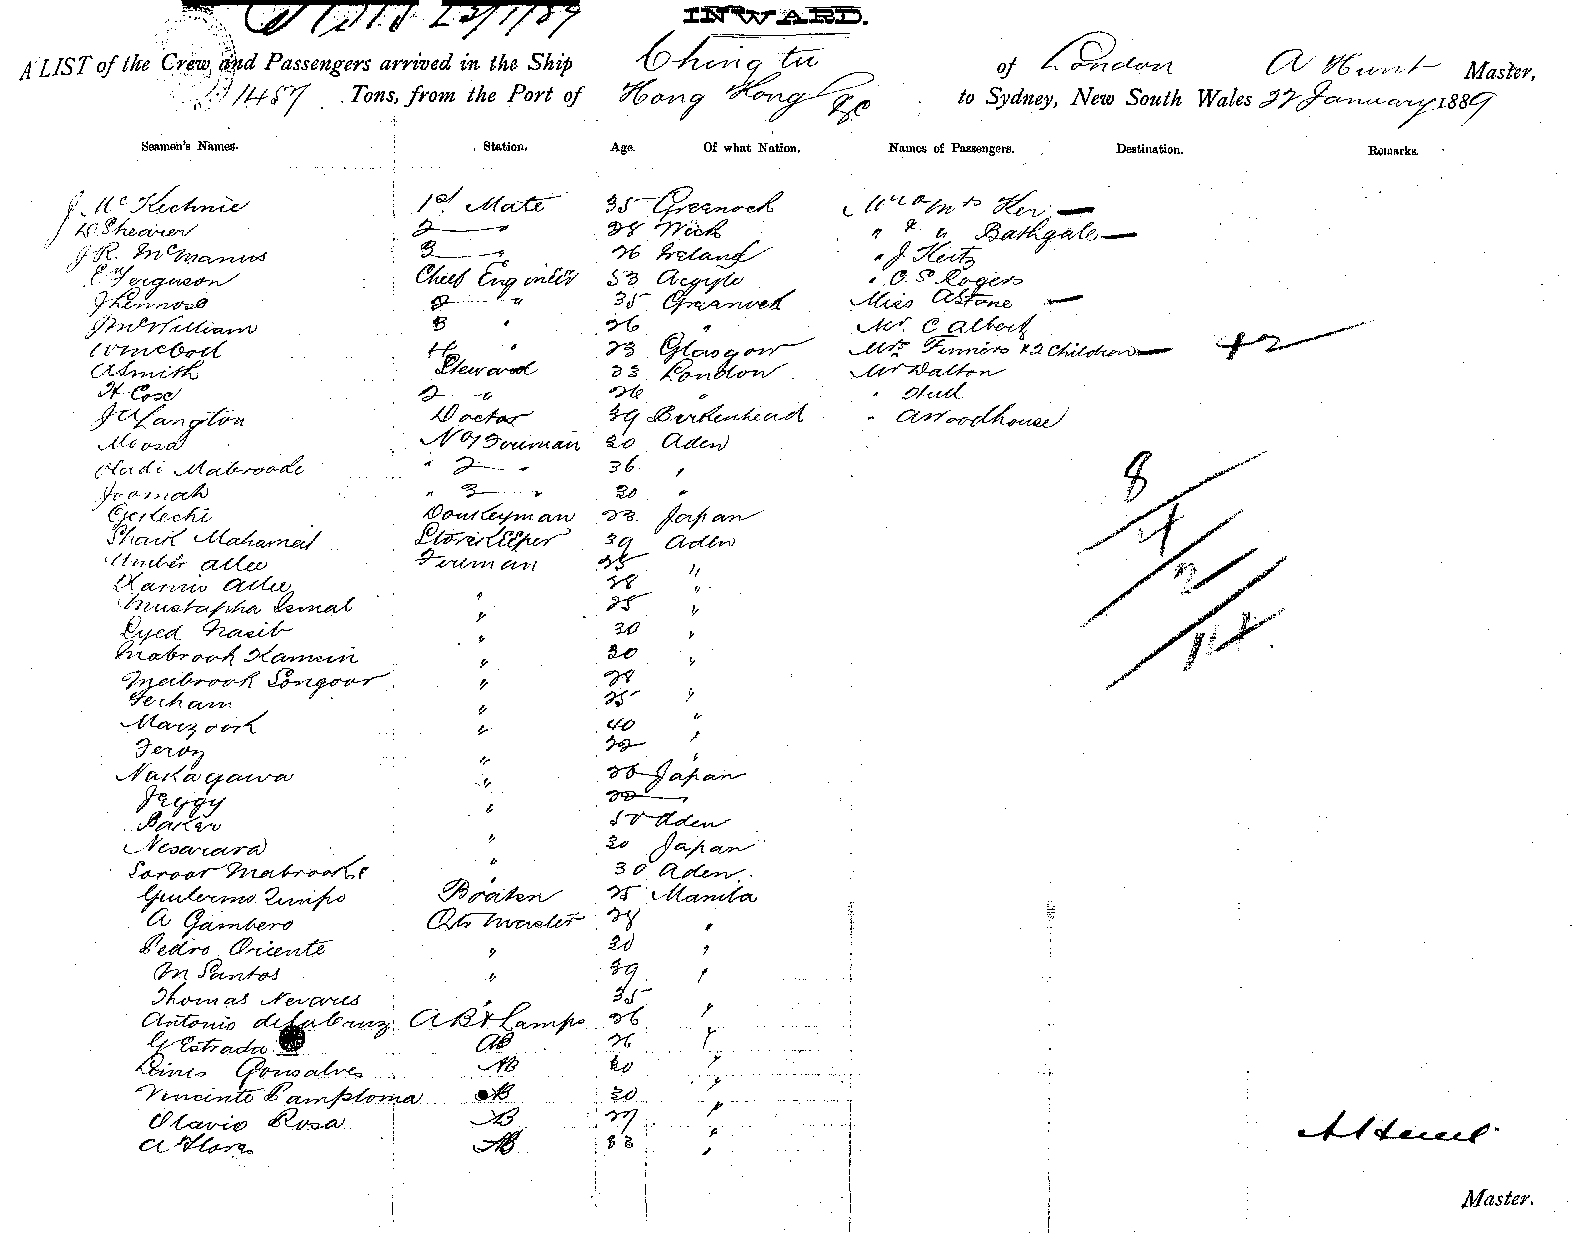 INWARD.
A LIST of the Crew and Passengers arrived in the Ship Chingtu of London A Hunt Master,
1457 Tons, from the Port of Hong Kong &c to Sydney, New South Wales 22 January 1889
Seamen's Names. Station. Age. Of what Nation. Names of Passengers. Destination. Remarks.
J McKechnie 1st Mate 35 Greenock Mr & Mrs Ker —
W Shearer 2 — " 28 Wick " & " Bathgate —
J R. McManus 3 — " 26 Ireland " J Kertz
Ferguson Cheef Engineer 53 Argyle " O. S. Rogers
2 " 35 Greenock Miss A Stone —
J McWilliam 3 " 26 " Mr. C Albert
4 " 23 Glasgow Mrs & 2 Children — + 2
A Smith Steward 33 London Mr Dalton
H Cose 2 " 26 " "
J A Langton Doctor 39 Birkenhead " A Woodhouse
Moosa No 1 Fireman 30 Aden
Hadi Mabroode " 2 — " 36 "
Joomah " 3 — " 30 "
Donkeyman 23 Japan
Shaik Mahamed StoreKeeper 39 Aden
Umber Allee Fireman 25 "
Allee " 28 "
Mustapha Ismal " 25 "
Syed Nasib " 30 "
Mabrook Kamcin " 30 "
Mabrook Songoor " 28 "
Ferham " 25 "
Marzook " 40 "
Feroz " "
Nakagawa " 26 Japan
Jeggy " "
Baker 50 Aden
Nesawara " 30 Japan
Soroor Mabrook " 30 Aden
Guilermo Boatsn 25 Manila
A Gambero Qtr Master 28 "
Pedro Oriente " 30 "
M Santos " 39 "
Thomas Nevares " 35 "
Antonio de la Cruz AB & Lamps 26 "
G Estrada AB 26 "
Gonsalves AB 20 "
Vincente Pamploma AB 30 "
Olavio Rosa AB 27 "
A Flores AB 33 "
8
4
2
14
A Hunt
Master.